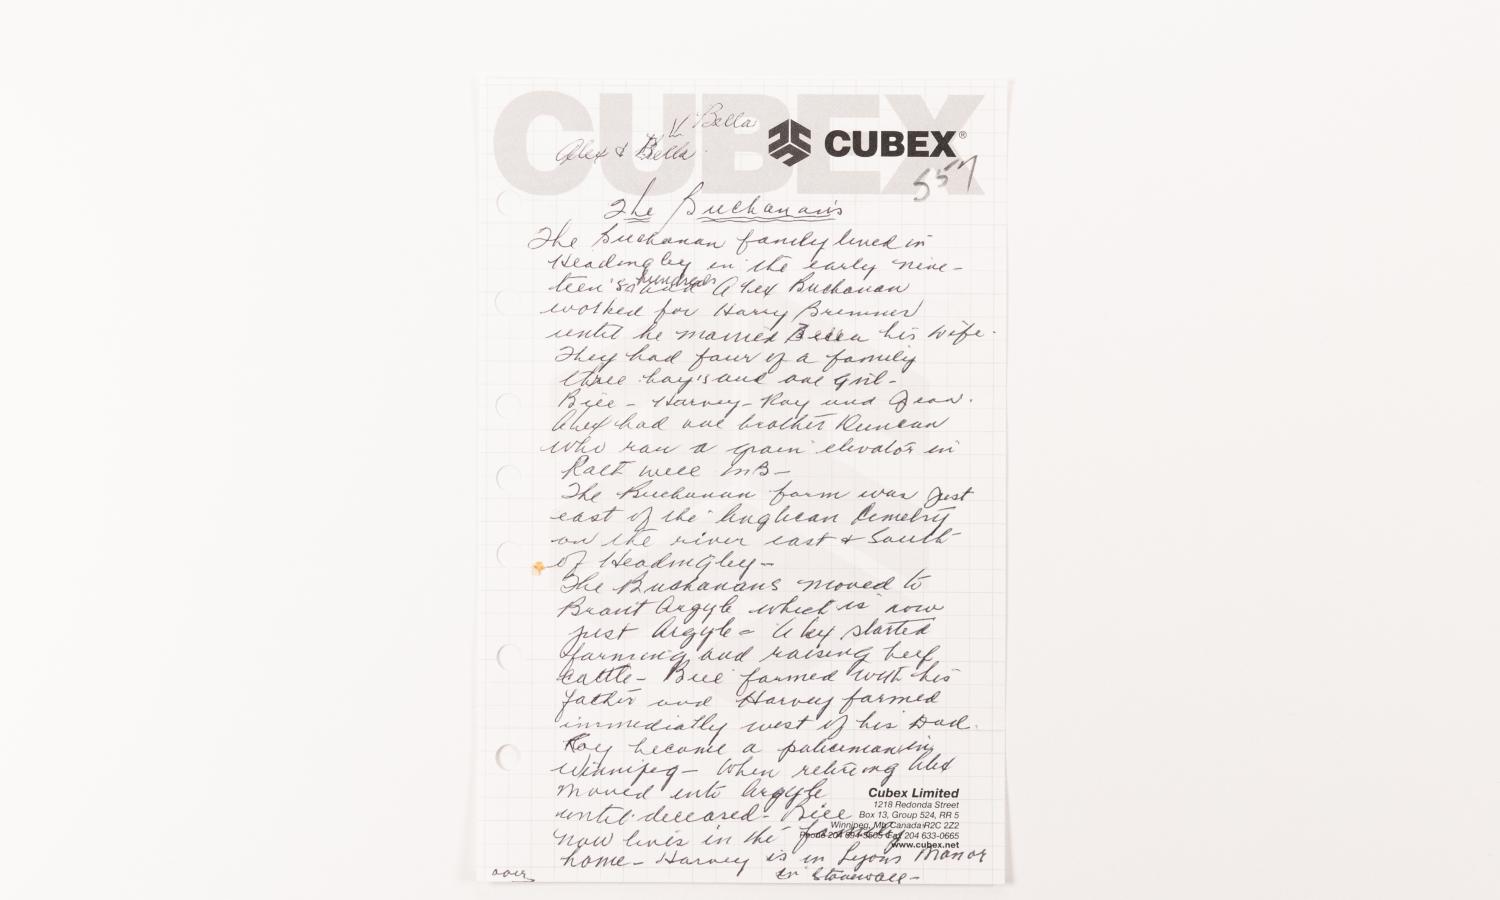 CUBEX
Bella
Alex & Bella
CUBEX®
557
The Buchanan's
The Buchanan family lived in
Headingley in the early nine-
teen's hundreds and Alex Buchanan
worked for Harry Bremner
until he married Bella his wife.
They had four of a family
three boy's and one girl-
Bill - Harvey - Roy and Jean.
Alex had one brother Duncan
who ran a grain elevator in
well MB-
The Buchanan farm was just
east of the Anglican Cemetry
on the river east & South
of Headingley-
The Buchanans moved to
Brant Argyle which is now
just Argyle - Alex started
farming and raising beef
cattle - Bill farmed with his
father and Harvey farmed
immediatly west of his Dad.
Roy become a policeman in
Winnipeg - When retireing Alex
moved into Argyle
until deceased - Bill
now lives in the family
home - Harvey is in Lyons Manor
in Stonewall-
over
Cubex Limited
1218 Redonda Street
Box 13, Group 524, RR 5
Winnipeg, Mb Canada R2C 2Z2
Phone 204 Fax 204 633-0665
www.cubex.net